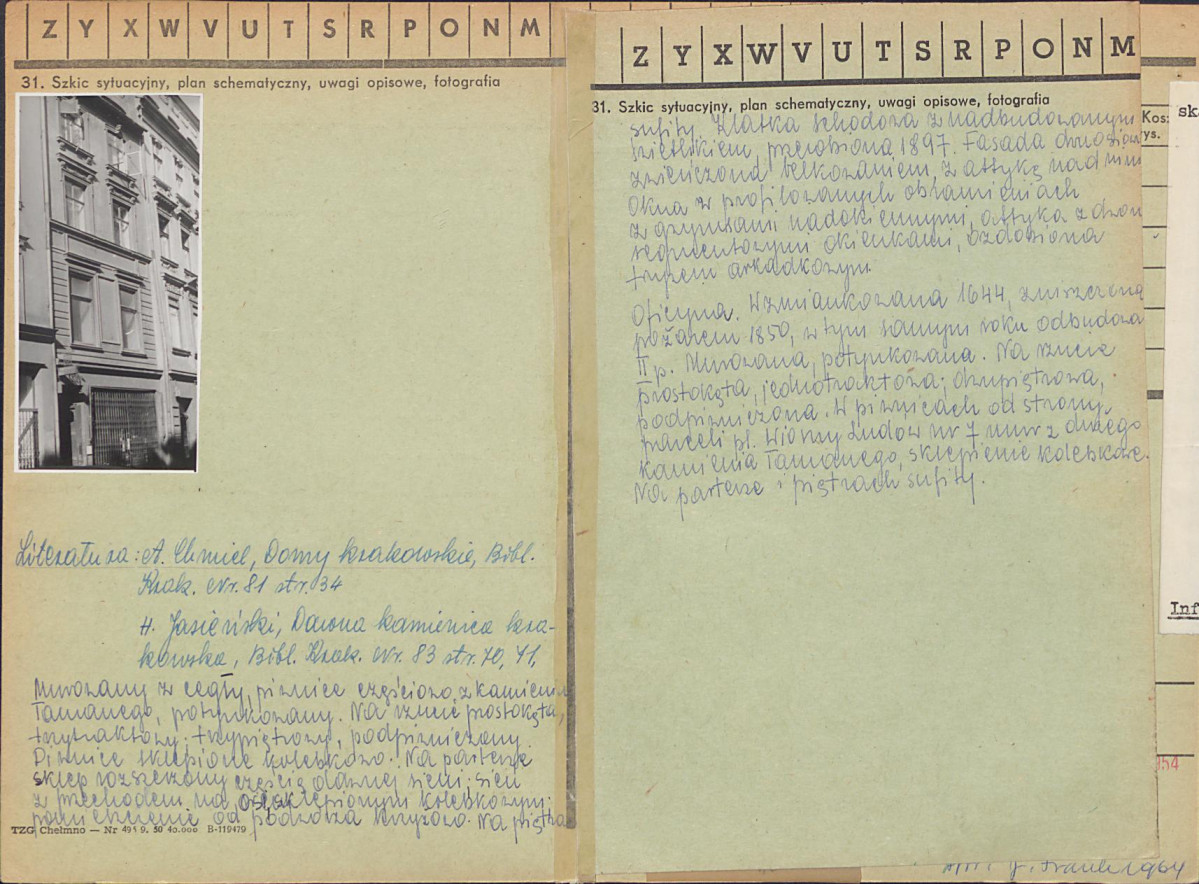 Z Y X W V U T S R P O N M
31. Szkic sytuacyjny, plan schematyczny, uwagi opisowe, fotografia
Literatura: A. Chmiel, Domy krakowskie, Bibl.
Krak. Nr. 81 str. 34
H. Jasieński, Dawna kamienica kra-
kowska, Bibl. Krak. Nr. 83 str. 70, 71,
Murowany z cegły, piwnice częściowo z kamienia
łamanego, potynkowany. Na rzucie prostokąta,
trzytraktowy; trzypiętrowy, podpiwniczony.
Piwnice sklepione kolebkowo. Na parterze
sklep rozszerzony częścią dawnej sieni; sień
z przechodem na osi, sklepionym kolebkowym;
pomieszczenie od podwórza krzyżowo. Na piętrach
TZG Chełmno — Nr 495 9. 50 40.000 B-119479
Z Y X W V U T S R P O N M
31. Szkic sytuacyjny, plan schematyczny, uwagi opisowe, fotografia
sufity. Klatka schodowa z nadbudowanym
świetlikiem, przerobiona 1897. Fasada dwuosiowa
zwieńczona belkowaniem, z attyką nad nim
Okna w profilowanych obramieniach
z gzymsami nadokiennymi, attyka z dwoma
segmentowymi okienkami, ozdobiona
fryzem arkadkowym
Oficyna. Wzmiankowana 1644, zniszczona
pożarem 1850, w tym samym roku odbudowa
II p. Murowana, potynkowana. Na rzucie
prostokąta, jednotraktowa; dwupiętrowa,
podpiwniczona. W piwnicach od strony
parceli pl. Wiosny Ludów nr 7 mur z dużego
kamienia łamanego, sklepienie kolebkowe.
Na parterze i piętrach sufity.
Kosz
rys.
sk
Inf
954
J. Frank 1964